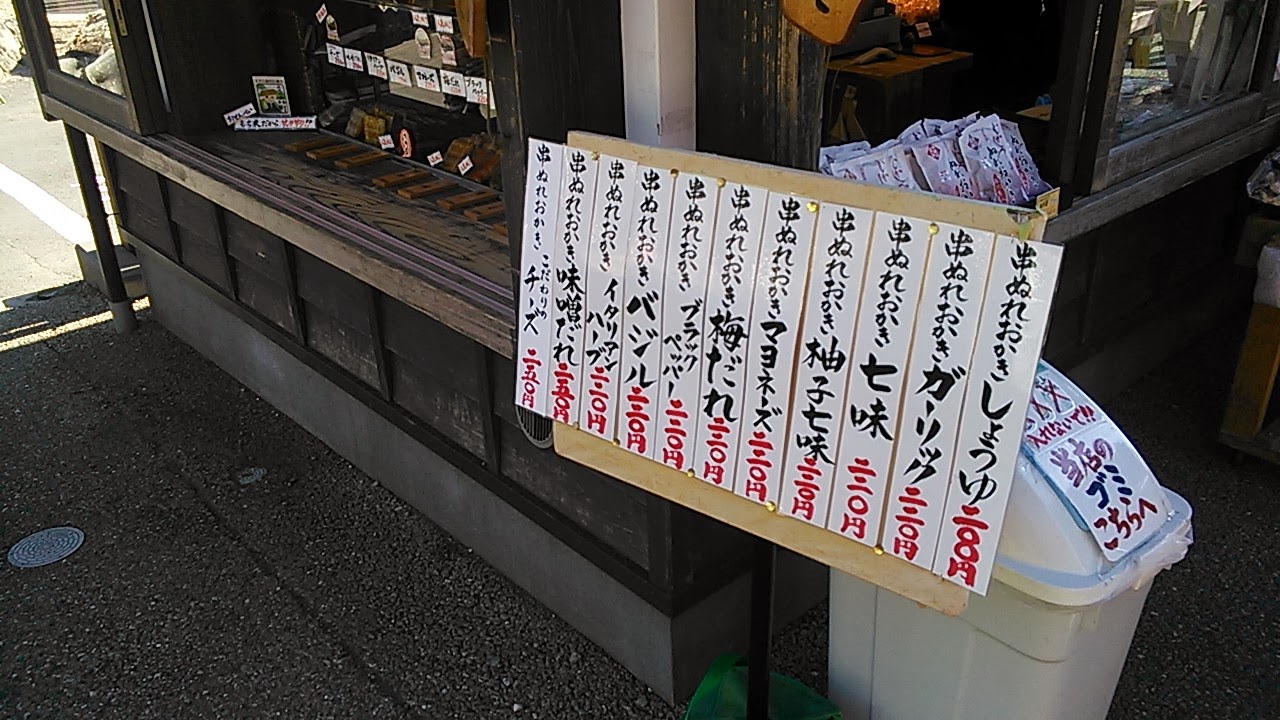 串ぬれおかき しょうゆ 二〇〇円
串ぬれおかき ガーリック 二二〇円
串ぬれおかき 七味 二二〇円
串ぬれおかき 柚子七味 二二〇円
串ぬれおかき マヨネーズ 二二〇円
串ぬれおかき 梅だれ 二二〇円
串ぬれおかき ブラックペッパー 二二〇円
串ぬれおかき バジル 二二〇円
串ぬれおかき イタリアンハーブ 二二〇円
串ぬれおかき 味噌だれ 二五〇円
串ぬれおかき こだわりのチーズ 二五〇円
入れないで!!
当店の
ゴミ
こちらへ